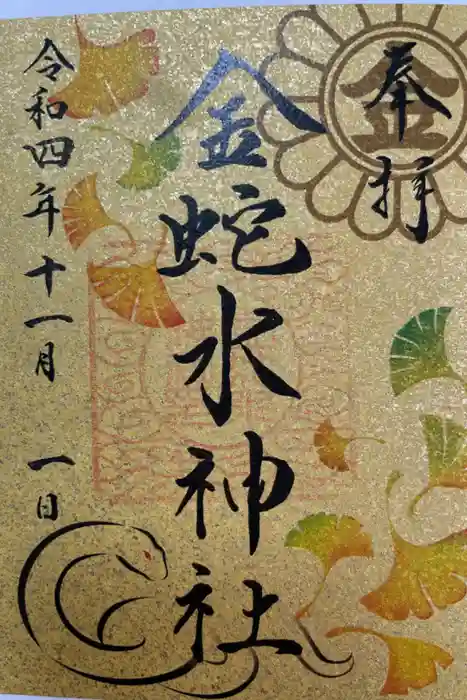 奉拝
金
金蛇水神社
令和四年十一月一日